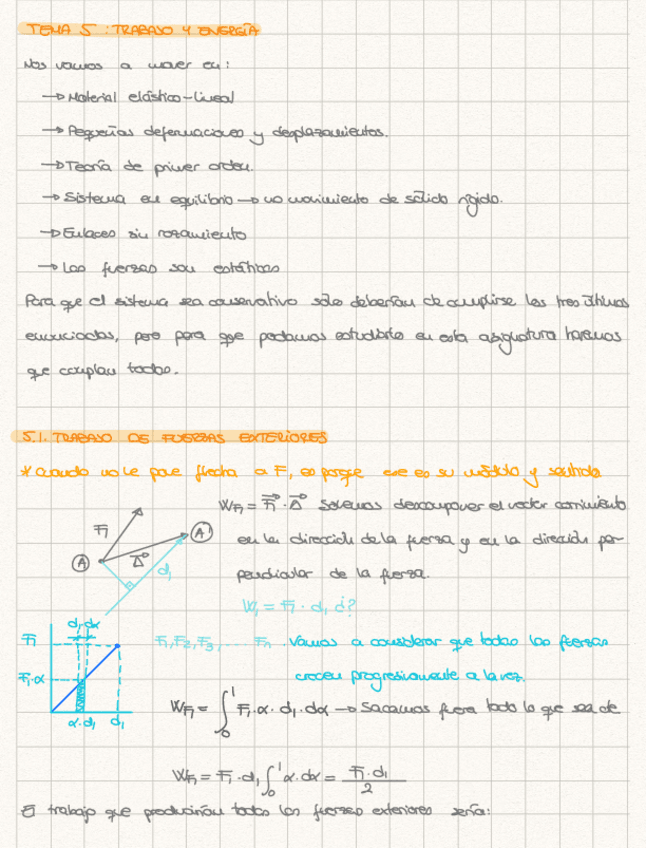 TEMA 5 : TRABAJO Y ENERGÍA
Nos vamos a mover en:
→ Material elástico-lineal
→ Pequeñas deformaciones y desplazamientos.
→ Teoría de primer orden.
→ Sistema en equilibrio → no movimiento de sólido rígido.
→ Enlaces sin rozamiento
→ Las fuerzas son estáticas
Para que el sistema sea conservativo sólo deberían de cumplirse las tres últimas
enunciadas, pero para que podamos estudiarlo en esta asignatura haremos
que cumplan todas.
5.1. TRABAJO DE FUERZAS EXTERIORES
* Cuando no le pone flecha a F, es porque ese es su módulo y sentido
W_F1 = F₁ · Δ Solemos descomponer el vector corrimiento
en la dirección de la fuerza y en la dirección per-
pendicular de la fuerza.
F₁
A
A'
Δ
d₁
W₁ = F₁ · d₁ ¿?
d₁·dα
F₁
F₁, F₂, F₃, ...... Fn . Vamos a considerar que todas las fuerzas
crecen progresivamente a la vez.
F₁·α
α·d₁
d₁
W_F1 = ∫₀¹ F₁·α · d₁ · dα → Sacamos fuera todo lo que sea de
W_F1 = F₁ · d₁ ∫₀¹ α·dα = F₁·d₁ / 2
El trabajo que producirían todas las fuerzas exteriores sería: